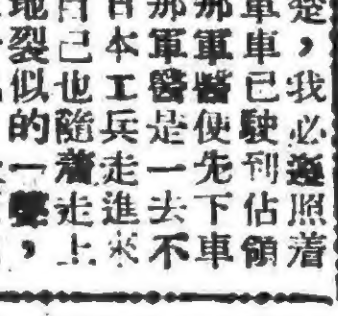 楚，我必遵照着
軍車已駛到佔領
那軍醫便先下車
那軍醫是一去不
日本工兵走進來
自己也隨着走上
地裂似的一聲，